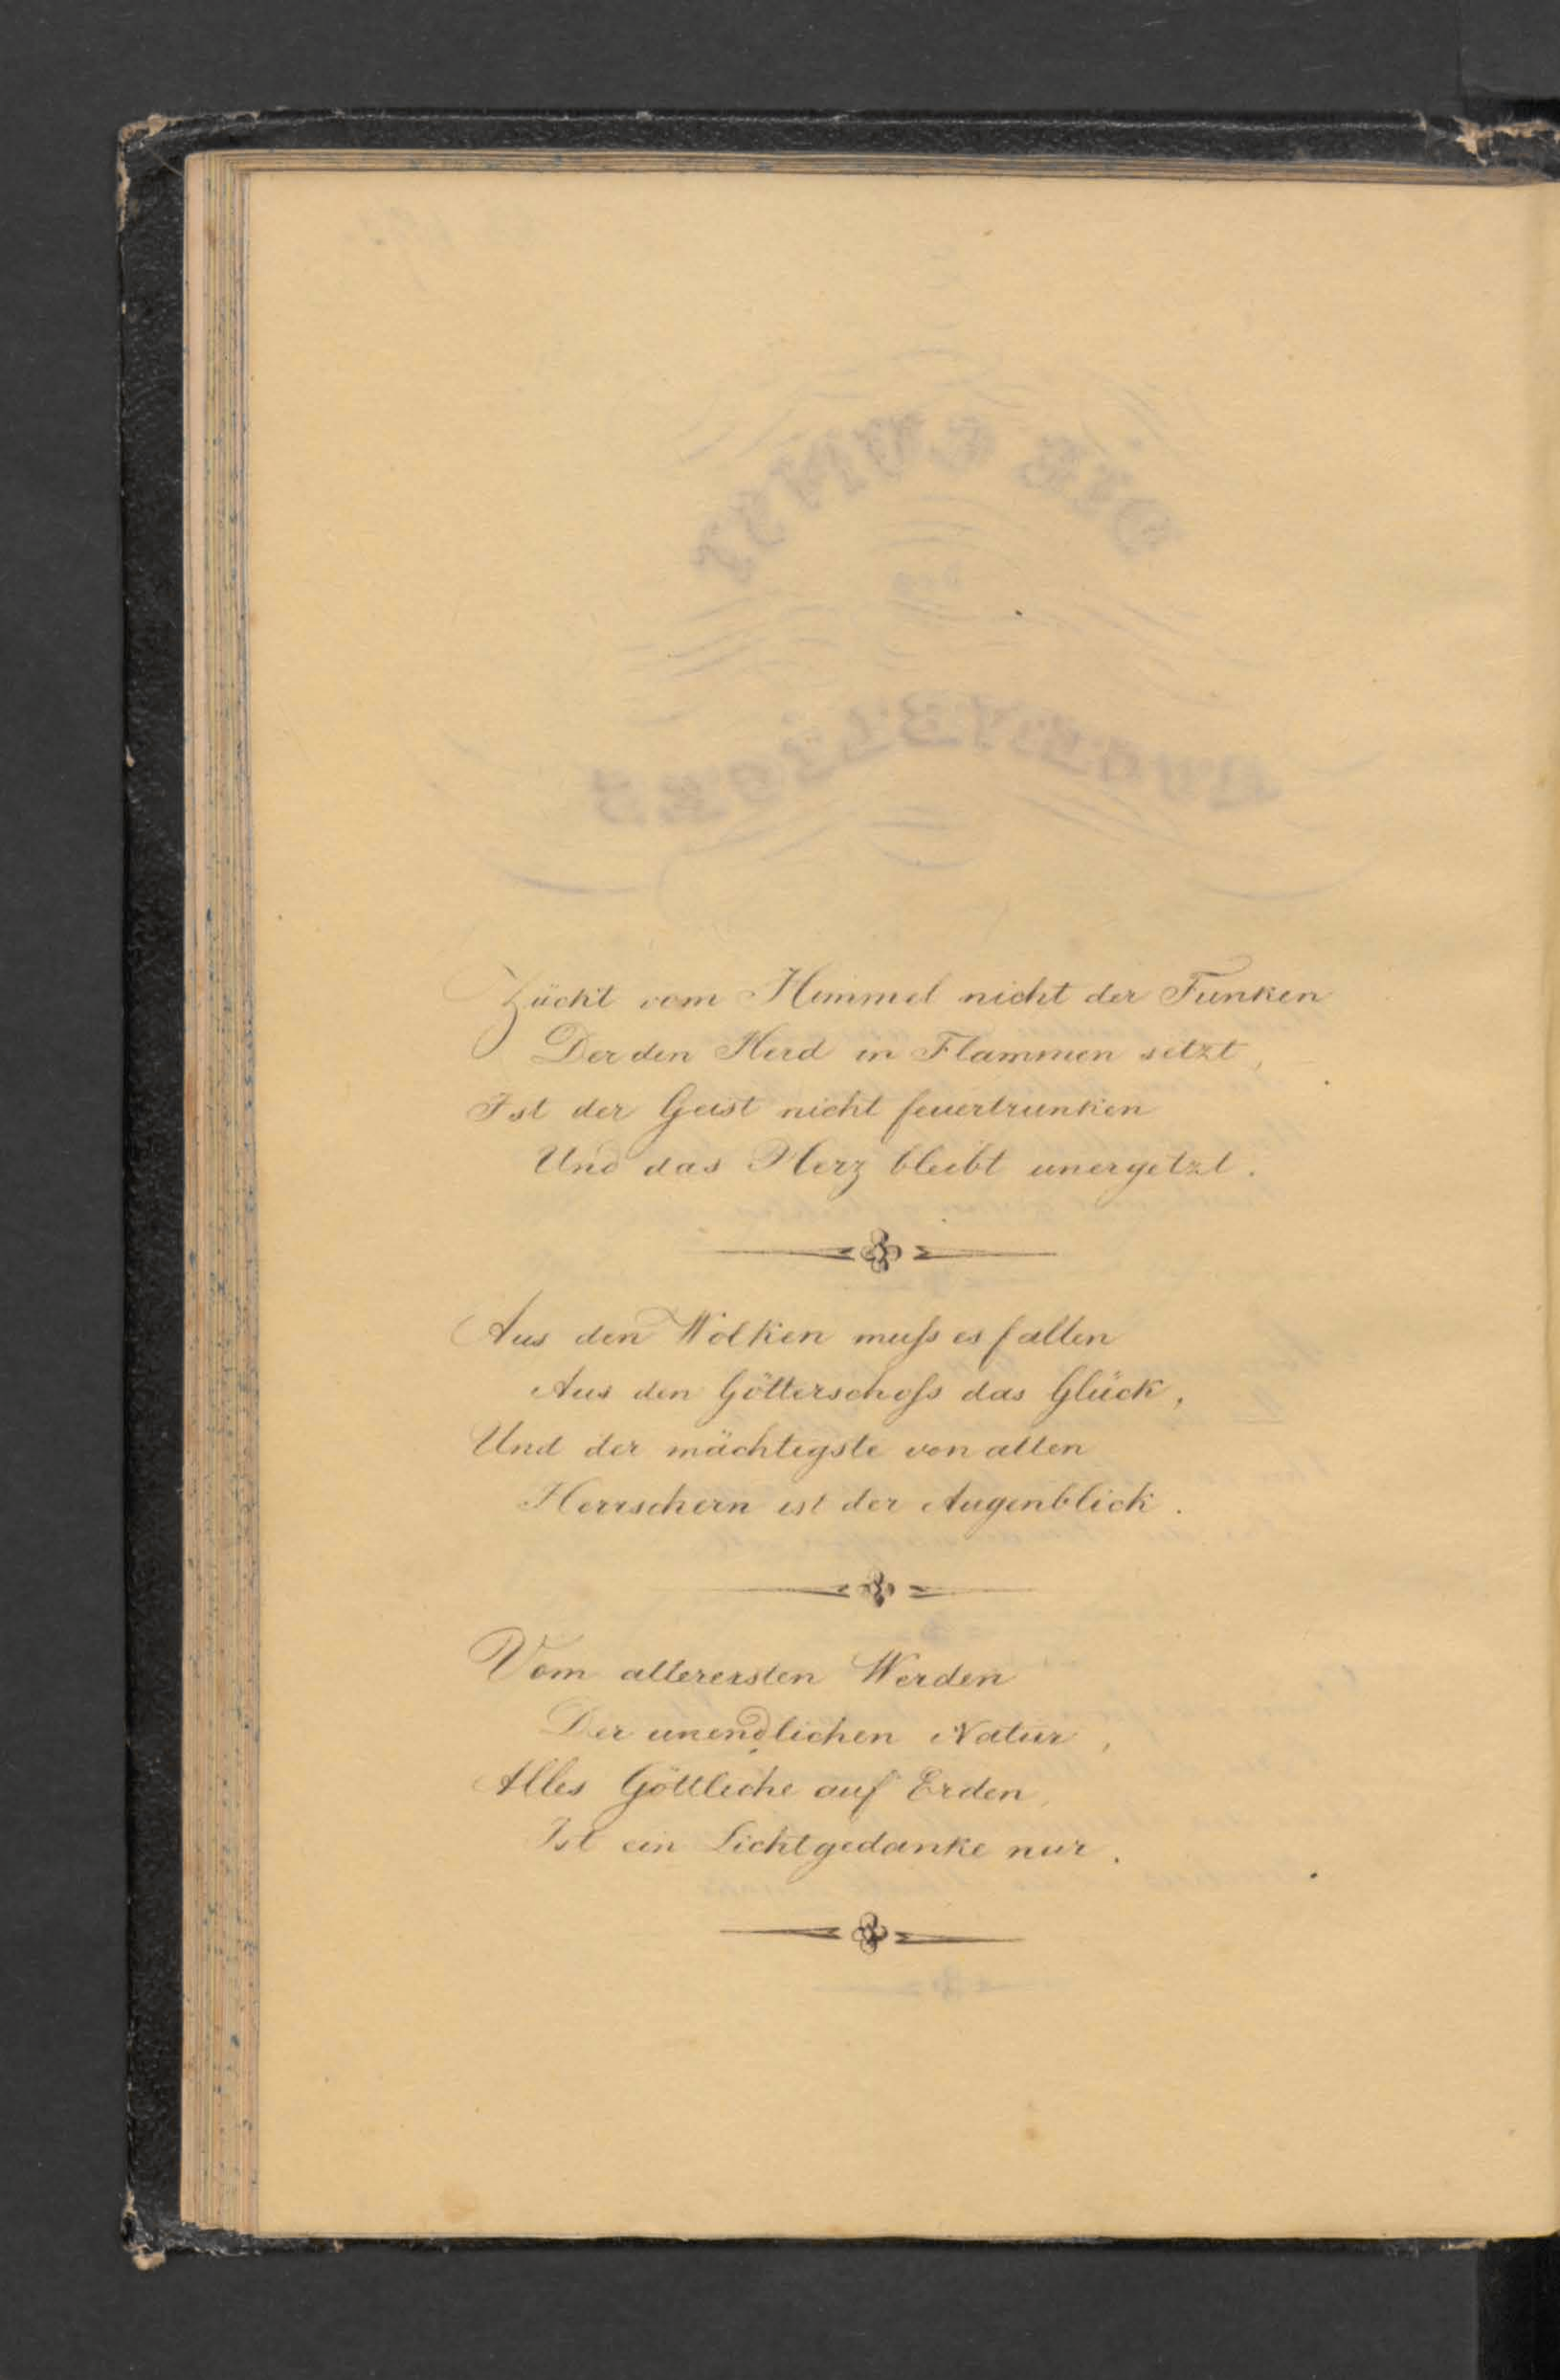 Zückt vom Himmel nicht der Funken
Der den Herd in Flammen setzt,
Ist der Geist nicht feuertrunken
Und das Herz bleibt unergetzt.
Aus den Wolken muſs es fallen
Aus den Götterschoſs das Glück,
Und der mächtigste von allen
Herrschern ist der Augenblick.
Vom allerersten Werden
Der unendlichen Natur,
Alles Göttliche auf Erden,
Ist ein Lichtgedanke nur.